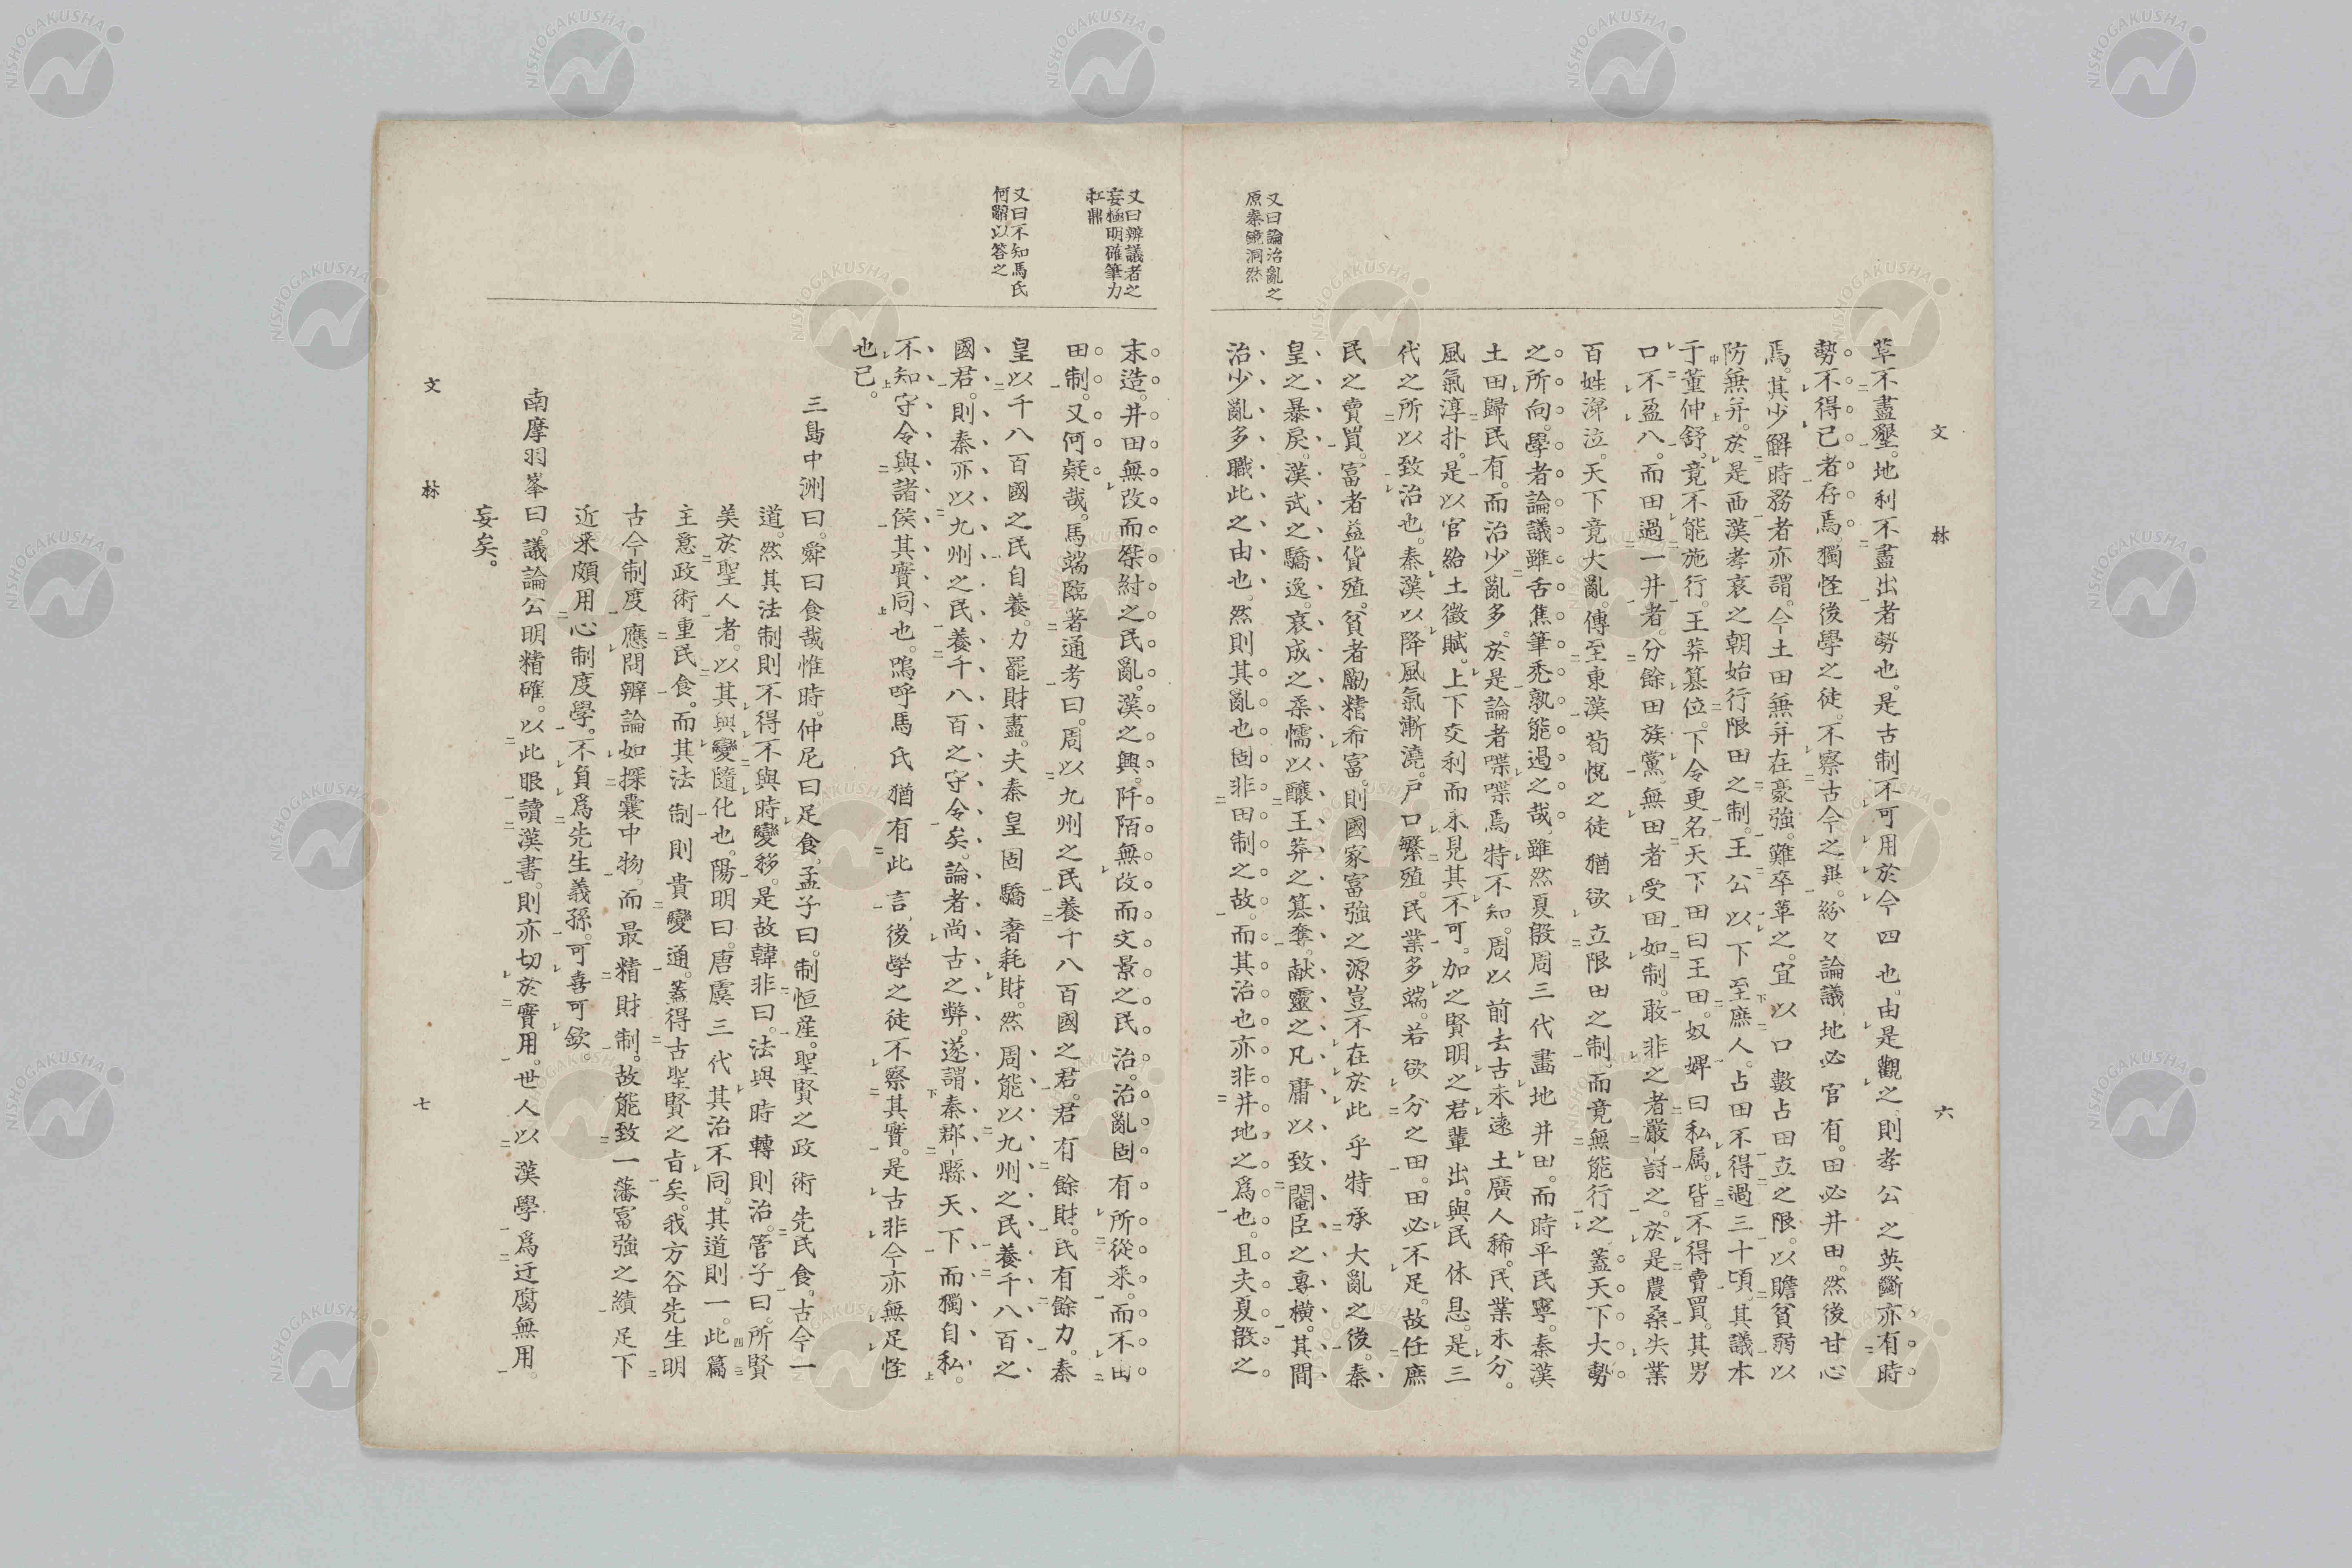 文林 六
又曰論治亂之
原秦鏡洞然
草不盡墾。地利不盡出者勢也。是古制不可用於今四也。由是觀之則孝公之英斷亦有時
勢不得已者存焉。獨怪後學之徒。不察古今之異。紛々論議地必官有。田必井田。然後甘心
焉。其少解時務者亦謂。今土田兼并在豪強。難卒革之。宜以口數占田立之限。以贍貧弱以
防兼并。於是西漢孝哀之朝始行限田之制。王公以下至庶人。占田不得過三十頃。其議本
于董仲舒。竟不能施行。王莽簒位。下令更名天下田曰王田。奴婢曰私属。皆不得賣買。其男
口不盈八。而田過一井者。分餘田族黨。無田者受田如制。敢非之者嚴討之。於是農桑失業
百姓涕泣。天下竟大亂。傳至東漢荀悅之徒猶欲立限田之制而竟無能行之蓋天下大勢
之所向。學者論議雖舌焦筆禿孰能遏之哉。雖然夏殷周三代畫地井田。而時平民寧。秦漢
土田歸民有。而治少亂多。於是論者喋喋焉特不知。周以前去古未遠土廣人稀。民業未分。
風氣淳朴。是以官給土徵賦。上下交利而未見其不可。加之賢明之君輩出。與民休息。是三
代之所以致治也。秦漢以降風氣漸澆。戶口繁殖。民業多端。若欲分之田。田必不足。故任庶
民之賣買。富者益貨殖。貧者勵精希富。則國家富強之源豈不在於此乎特承大亂之後。秦
皇之暴戾。漢武之驕逸。哀成之柔懦以釀王莽之簒奪。献靈之凡庸以致閹臣之專横。其間
治少亂多職此之由也。然則其亂也固非田制之故。而其治也亦非井地之爲也。且夫夏殷之
又曰辨議者之
妄極明確筆力
扛鼎
又曰不知馬氏
何辭以答之
末造。井田無改而桀紂之民亂。漢之興。阡陌無改而文景之民治。治亂固有所從来。而不由
田制。又何疑哉。馬端臨著通考曰。周以九州之民養千八百國之君。君有餘財。民有餘力。秦
皇以千八百國之民自養。力罷財盡。夫秦皇固驕奢耗財。然周能以九州之民養千八百之
國君。則秦亦以九州之民養千八百之守令矣。論者尚古之弊。遂謂秦郡縣天下而獨自私。
不知守令與諸侯其實同也。嗚呼馬氏猶有此言。後學之徒不察其實。是古非今亦無足怪
也已。
三島中洲曰。舜曰食哉惟時。仲尼曰足食。孟子曰。制恒産。聖賢之政術先民食。古今一
道。然其法制則不得不與時變移。是故韓非曰。法與時轉則治。管子曰。所賢
美於聖人者。以其與變隨化也。陽明曰。唐虞三代其治不同。其道則一。此篇
主意政術重民食。而其法制則貴變通。蓋得古聖賢之旨矣。我方谷先生明
古今制度應問辨論如探囊中物。而最精財制。故能致一藩富強之績足下
近来頗用心制度學。不負爲先生義孫。可喜可欽。
南摩羽峯曰。議論公明精確。以此眼讀漢書。則亦切於實用。世人以漢學爲迂腐無用。
妄矣。
文林 七